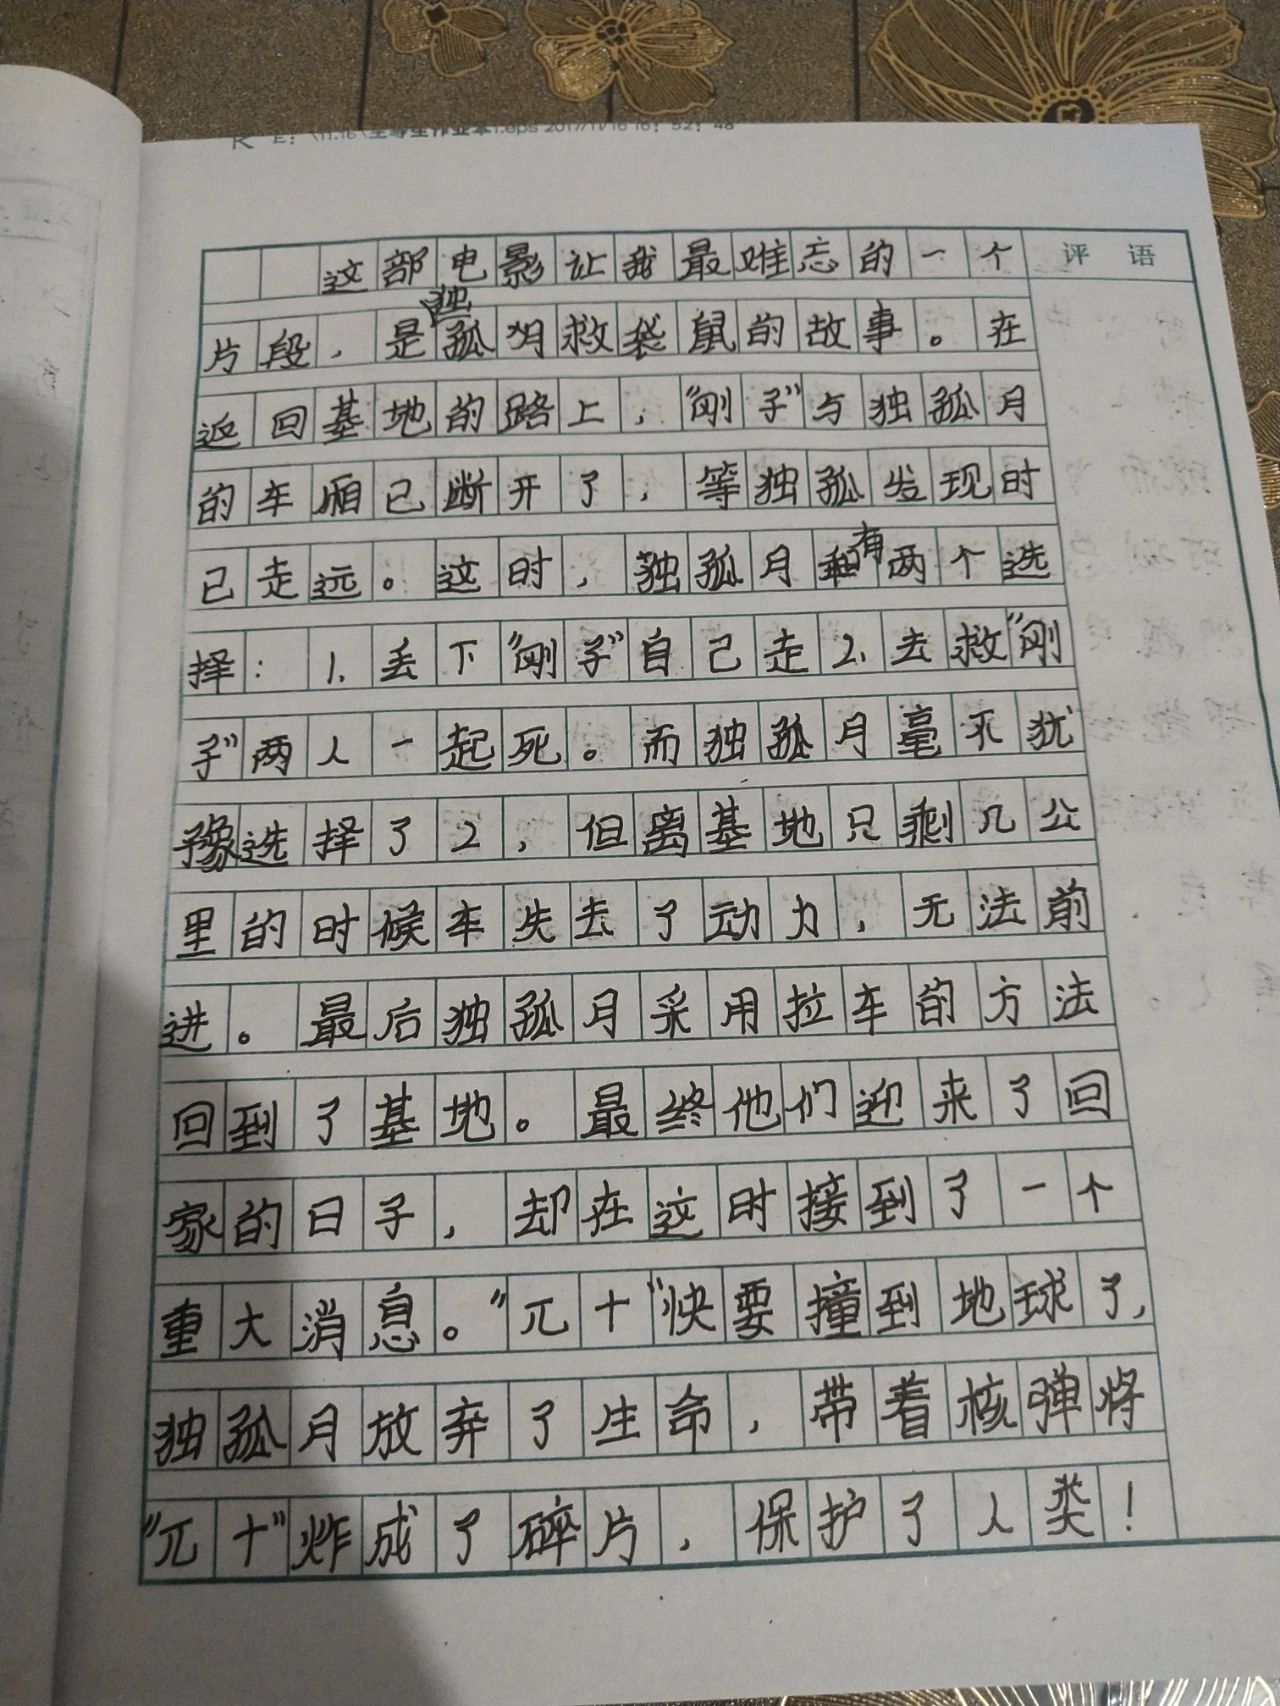 (11.16)全等生作业本1.eps 2017/11/16 16:52:48
评 语
这部电影让我最难忘的一个
片段，是独孤月救袋鼠的故事。在
返回基地的路上，“刚子”与独孤月
的车厢已断开了，等独孤发现时
已走远。这时，独孤月有两个选
择：1.丢下“刚子”自己走2.去救“刚
子”两人一起死。而独孤月毫不犹
豫选择了2，但离基地只剩几公
里的时候车失去了动力，无法前
进。最后独孤月采用拉车的方法
回到了基地。最终他们迎来了回
家的日子，却在这时接到了一个
重大消息。”兀十“快要撞到地球了，
独孤月放弃了生命，带着核弹将
“兀十”炸成了碎片，保护了人类！